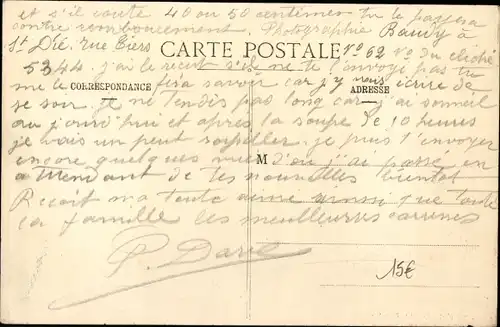 et s'il coute 40 ou 50 centimes tu le passera
contre remboursement. Photographie Baudy à
St Dié, rue Tiers N° 62 N° du cliché
CARTE POSTALE
5344 j'ai le recu s'il ne te l'envoyi pas tu
me le fera savoir car j'y vais écrire de
CORRESPONDANCE
ADRESSE
se soir. Je ne t'endis pas long car j'ai sommeil
au jourd'hui et après la soupe de 10 heures
je vais un peut roupiller. je puis t'envoyer
encore quelques vues d'ou j'ai passé en
M
attendant de tes nouvelles bientot
Recoit ma tante ainsi que toute
la famille les meilleurres carresses
P. David
15€